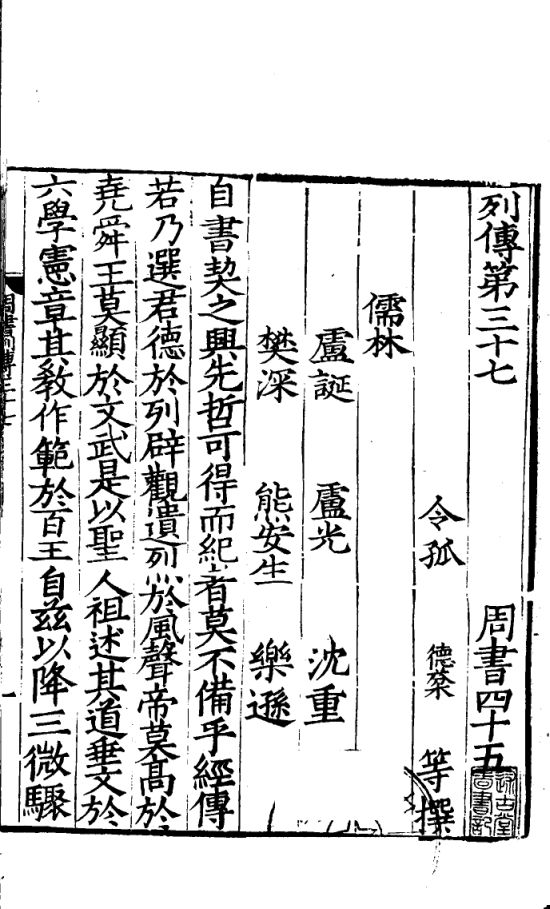 列傳第三十七 周書四十五
令狐 德棻 等撰
儒林
盧誕 盧光 沈重
樊深 熊安生 樂遜
自書契之興先哲可得而紀者莫不備乎經傳
若乃選君德於列辟觀遺烈於風聲帝莫高於
堯舜王莫顯於文武是以聖人祖述其道垂文於
六學憲章其教作範於百王自茲以降三微驟
周書列傳三十七